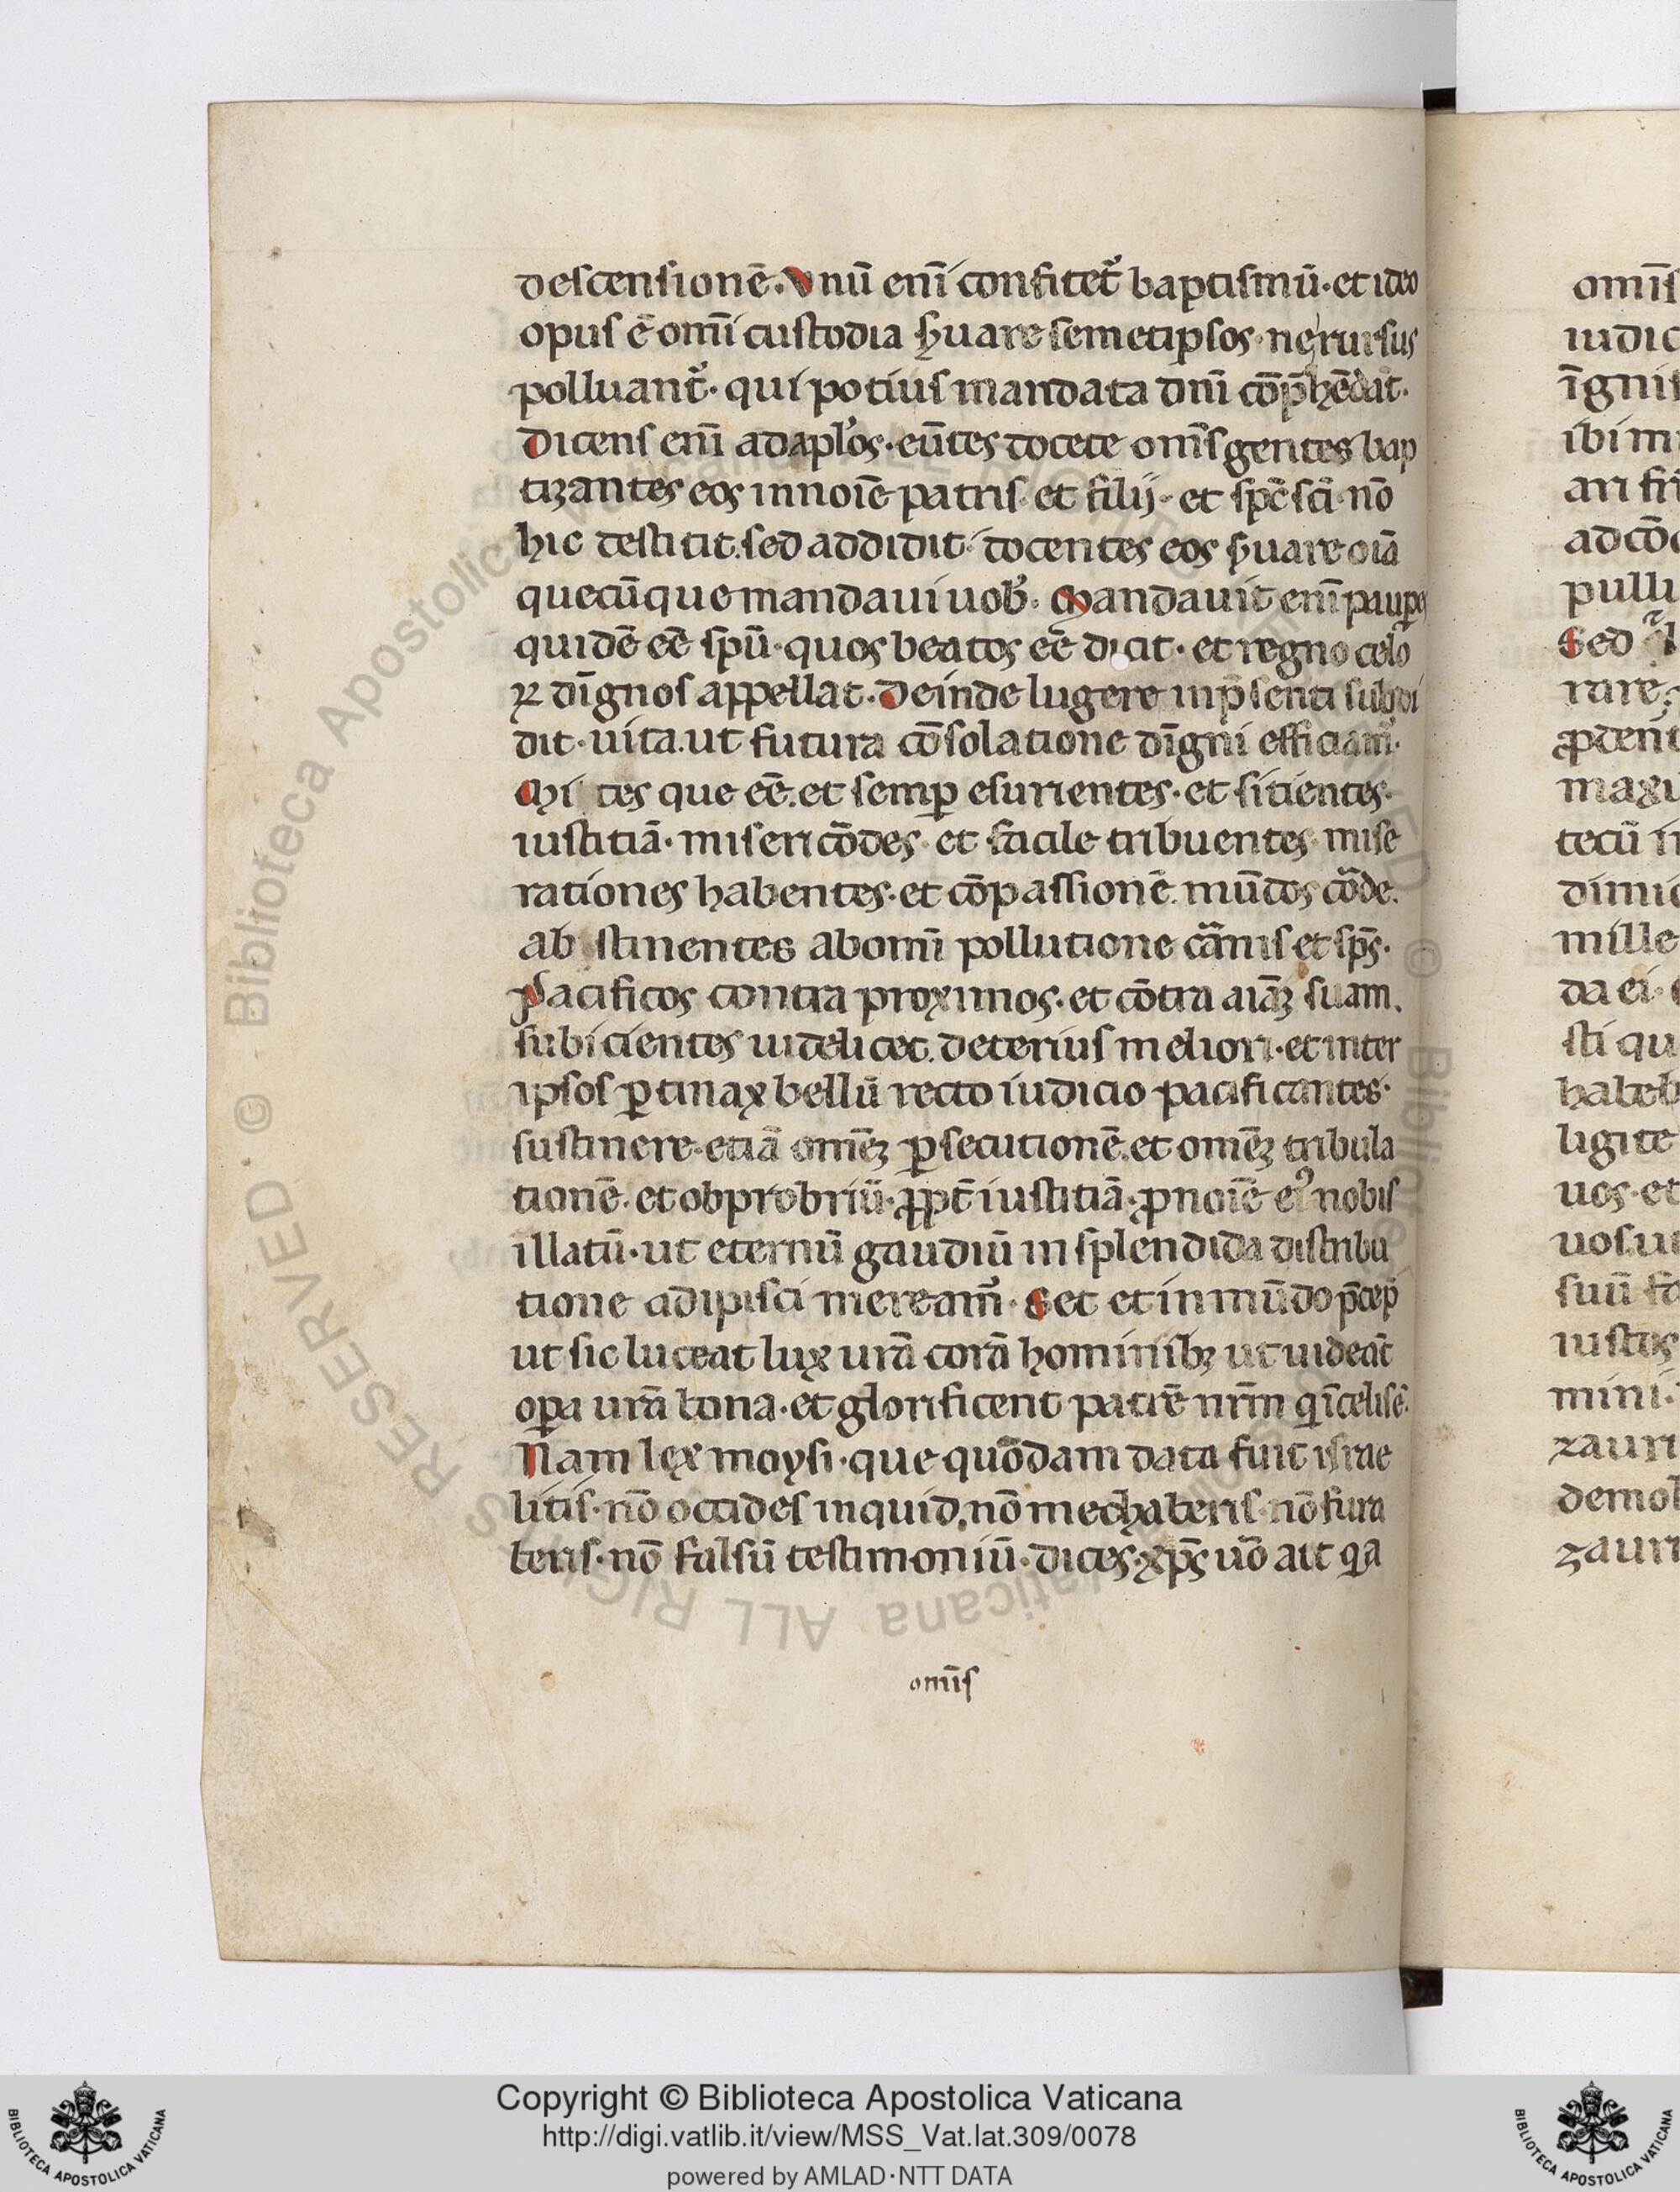 descensionē. Vnū enī confitet᷑ baptismū· et ideo
opus ē omī custodia ẜuare semetipsos· ne rursus
polluant᷑· qui potius mandata dnī cōp̄hēdāt·
Dicens enī ad apl'os· eūtes docete omīs gentes bap
tizantes eos in noīe patris· et filij· et spc̄ scī· nō
hic destitit· sed addidit· docentes eos ẜuare oīa
quecūque mandaui uob᷑· Mandauit enī paupes
quidē eē spū· quos beatos eē dicit· et regno celo
ꝝ dīgnos appellat· Deinde lugere in p̄senti subdi
dit· uita. ut futura cōsolatione dīgni efficiam᷑·
Mi tes que eē. et semꝑ esurientes· et sitientes·
iustitiā· misericōdes· et facile tribuentes mise
rationes habentes· et cōpassionē. mūdos cōde.
ab stinentes ab omī pollutione cārnis et sp̄s·
Pacificos contra proximos· et cōtra aīaꝫ suam.
subicientes uidelicet. deterius meliori· et inter
ipsos ꝑtinax bellū recto iudicio pacificantes·
sustinere· etiā omēꝫ ꝑsecutionē. et omēꝫ tribula
tionē· et obprobriū· ꝓpt̄ iustitiā· ꝓ noīe eiꝰ nobis
illatū· ut eternū gaudiū in splendida distribu
tione adipisci meream᷑· Set et in mūdo p̄cep̄
ut sic luceat lux urā corā hominibꝫ ut uideāt
oꝑa urā bona· et glorificent patrē nrm̄ qi ī celis ē·
Nam lex moysi· que quōdam data fuit israe
litis· nō occides inquid, nō mechaberis· nō fura
beris· nō falsū testimoniū· dices· xp̄s uō ait qa
omīs
omīs
iudic
īgnis
ibi m
ari fr
ad cō
pullu
Sed
rare
ꝓden
maxi
tecū
dimi
mille
da ei·
sti qu
habeb
ligite
uos· et
uos. u
suū
iustos
mini·
zauri
demol
zauri
Copyright © Biblioteca Apostolica Vaticana
http://digi.vatlib.it/view/MSS_Vat.lat.309/0078
powered by AMLAD·NTT DATA
BIBLIOTECA APOSTOLICA VATICANA
BIBLIOTECA APOSTOLICA VATICANA